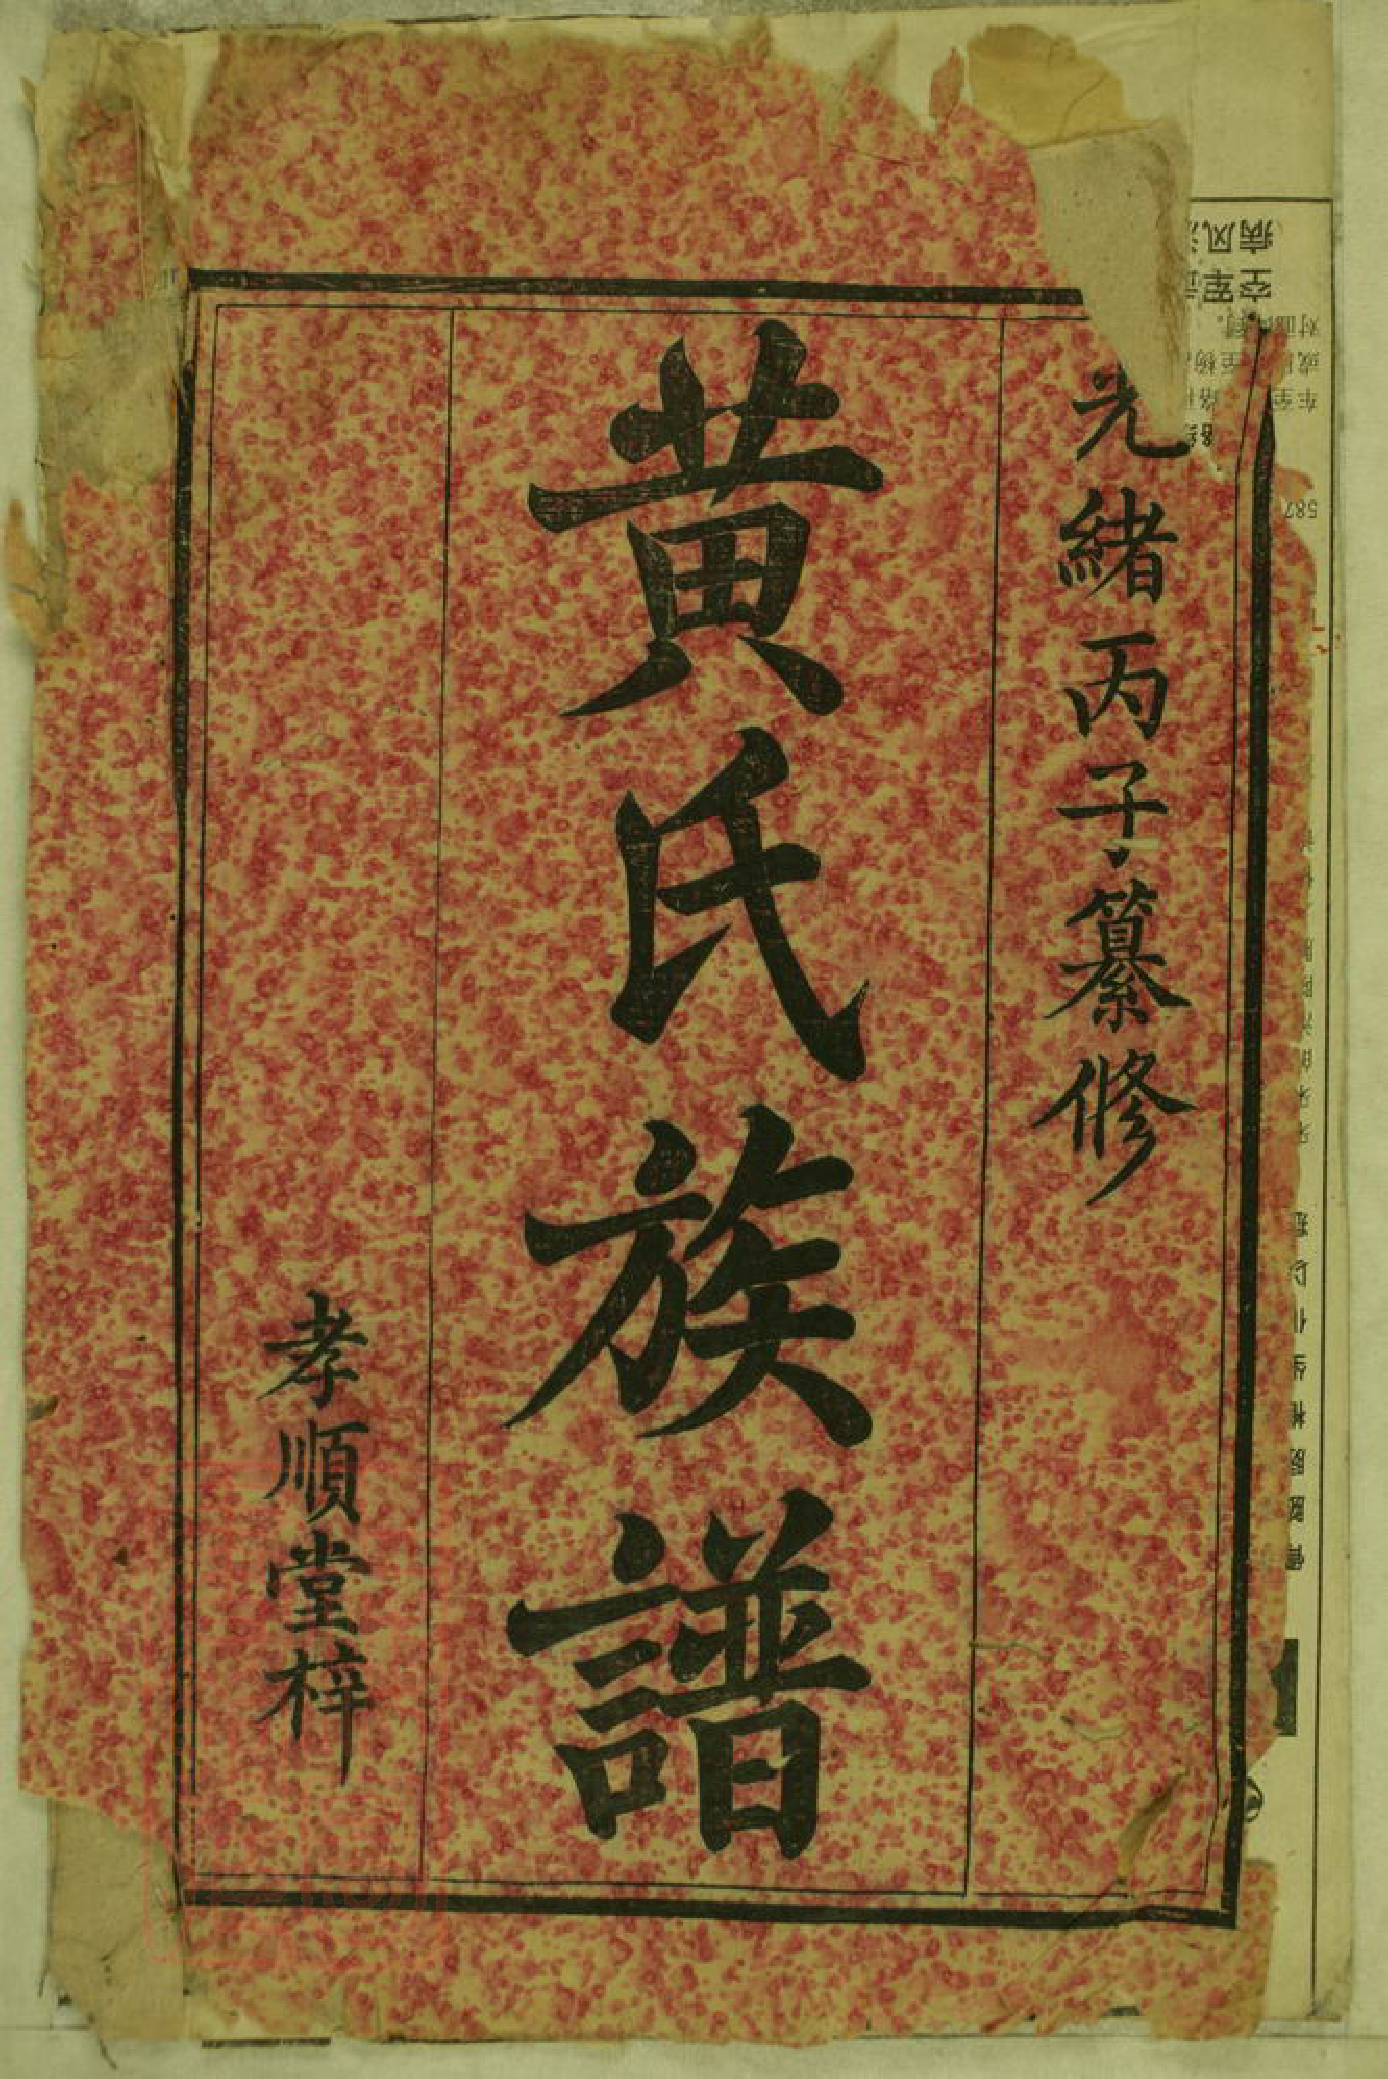 光緒丙子纂修
黄氏族譜
孝順堂梓
587